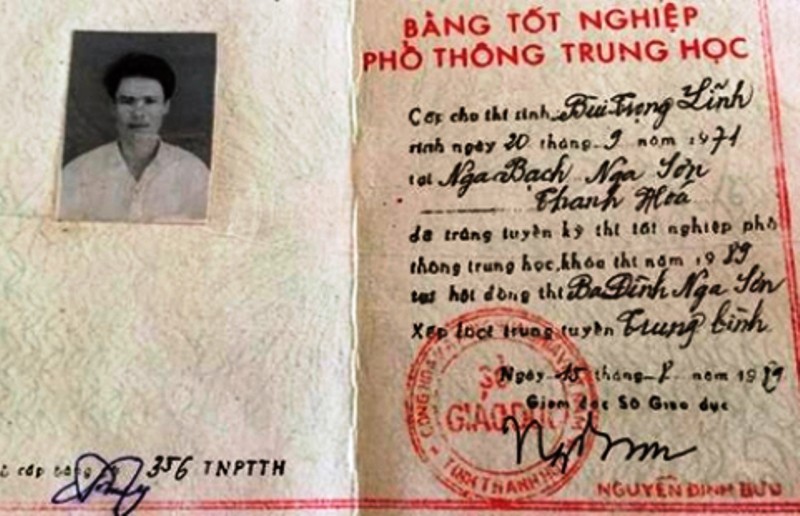 BẰNG TỐT NGHIỆP
PHỔ THÔNG TRUNG HỌC
Cấp cho thí sinh Bùi Trọng Lĩnh
sinh ngày 20 tháng 9 năm 1971
tại Nga Bạch Nga Sơn
Thanh Hoá
đã trúng tuyển kỳ thi tốt nghiệp phổ
thông trung học, khóa thi năm 1989
tại hội đồng thi Ba Đình Nga Sơn
Xếp loại trúng tuyển Trung bình
Ngày 15 tháng 8 năm 1989
Giám đốc Sở Giáo dục
SỞ
GIÁO DỤC
TỈNH THANH HÓA
NGUYỄN ĐÌNH BƯU
cấp bằng 356 TNPTTH